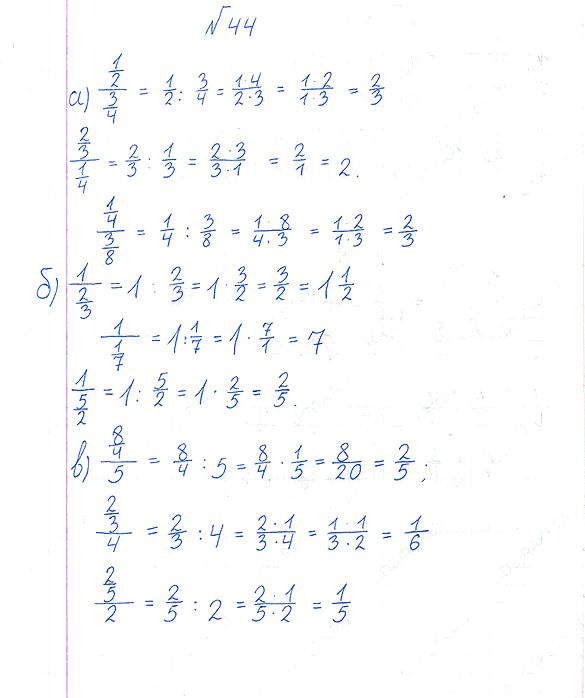 №44
а) (1/2)/(3/4) = 1/2 : 3/4 = (1·4)/(2·3) = (1·2)/(1·3) = 2/3
(2/3)/(1/4) = 2/3 : 1/3 = (2·3)/(3·1) = 2/1 = 2.
(1/4)/(3/8) = 1/4 : 3/8 = (1·8)/(4·3) = (1·2)/(1·3) = 2/3
б) 1/(2/3) = 1 : 2/3 = 1 · 3/2 = 3/2 = 1 1/2
1/(1/7) = 1 : 1/7 = 1 · 7/1 = 7
1/(5/2) = 1 : 5/2 = 1 · 2/5 = 2/5.
в) (8/4)/5 = 8/4 : 5 = 8/4 · 1/5 = 8/20 = 2/5;
(2/3)/4 = 2/3 : 4 = (2·1)/(3·4) = (1·1)/(3·2) = 1/6
(2/5)/2 = 2/5 : 2 = (2·1)/(5·2) = 1/5